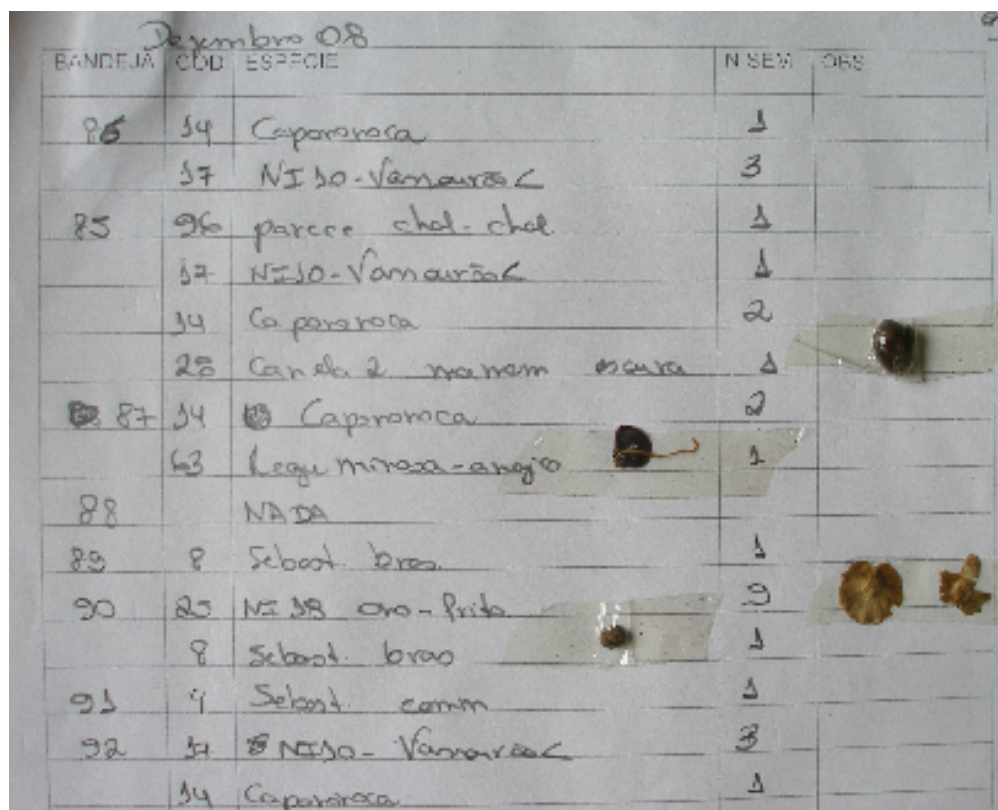 Dezembro 08
BANDEJA COD ESPÉCIE N SEM OBS
86 14 Capororoca 1
17 NI 10-Vamourão C 3
85 96 parece chal-chal 1
17 NI10-Vamourão C 1
14 Capororoca 2
28 Canela 2 marrom escura 1
87 14 Capororoca 2
63 Leguminosa-angio 1
88 NADA
89 8 Sebast. bras. 1
90 25 NI 18 ovo-frito 9
8 Sebast. bras 1
91 4 Sebast. comm 1
92 17 NI10-Vamourão C 3
14 Capororoca 1